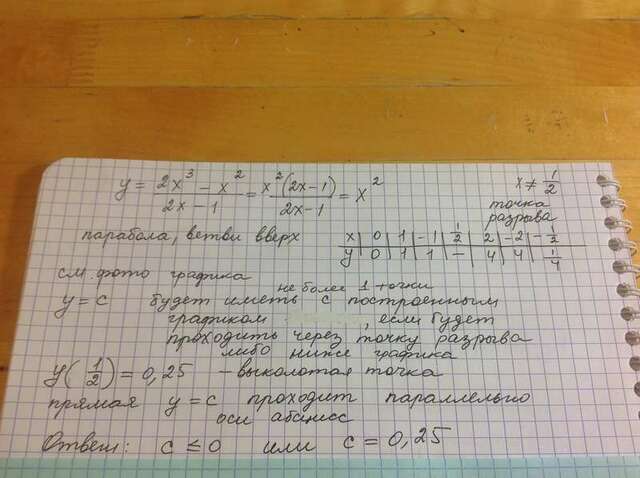 y = \frac{2x^3 - x^2}{2x - 1} = \frac{x^2(2x-1)}{2x-1} = x^2
x ≠ \frac{1}{2}
точка
разрыва
парабола, ветви вверх
x | 0 | 1 | -1 | \frac{1}{2} | 2 | -2 | -\frac{1}{2}
y | 0 | 1 | 1 | - | 4 | 4 | \frac{1}{4}
см. фото графика
не более 1 точки
y = c будет иметь с построенным
графиком , если будет
проходить через точку разрыва
либо ниже графика
y(\frac{1}{2}) = 0,25 - выколотая точка
прямая y = c проходит параллельно
оси абсцисс
Ответ: c ≤ 0 или c = 0,25